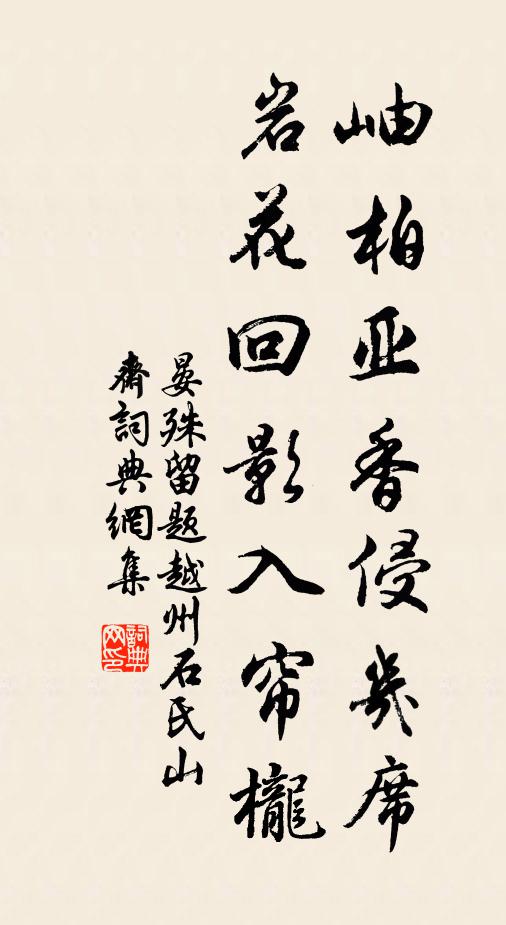 岫柏亚香侵幾席
岩花回影入帘櫳
晏殊留题越州石氏山
齋詞典網集
詞典
网印